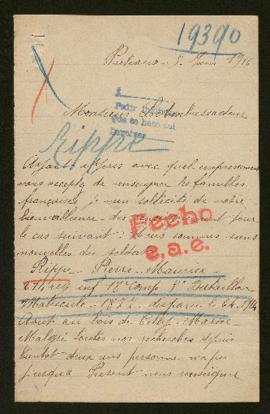 19390
Puteaux 5 Juin 1916
Monsieur L'Ambassadeur
Pedir
que se hace cui
Rippe
Ayant appris avec quel empressement
vous acceptez de renseigner les familles
françaises je viens solliciter de votre
bienveillance des renseignements pour
le cas suivant : Nous sommes sans
nouvelles du soldat
Fecho
e.a.e.
Rippe Pierre Maurice
inf 12e Comp 3e Bataillon
Matricule disparu le 24
Août au bois de Marne
Malgré toutes nos recherches depuis
bientôt deux ans personne n'a pu
jusqu'à présent nous renseigner